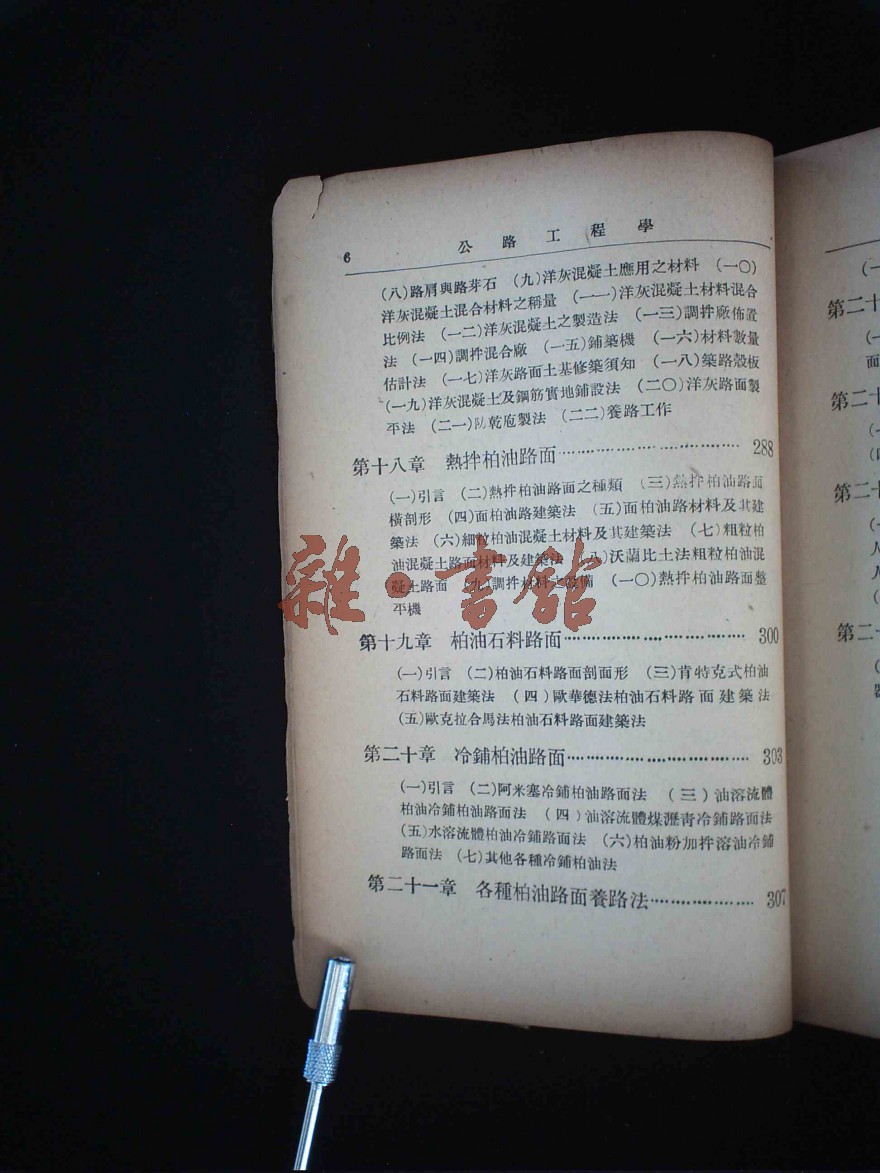 6 公路工程學
(八)路肩與路芽石 (九)洋灰混凝土應用之材料 (一〇)
洋灰混凝土混合材料之稱量 (一一)洋灰混凝土材料混合
比例法 (一二)洋灰混凝土之製造法 (一三)調拌廠佈置
法 (一四)調拌混合廠 (一五)鋪築機 (一六)材料數量
估計法 (一七)洋灰路面土基修築須知 (一八)築路殼板
(一九)洋灰混凝土及鋼筋實地鋪設法 (二〇)洋灰路面製
平法 (二一)乾庖製法 (二二)養路工作
第十八章 熱拌柏油路面 288
(一)引言 (二)熱拌柏油路面之種類 (三)熱拌柏油路面
橫剖形 (四)面柏油路建築法 (五)面柏油路材料及其建
築法 (六)細粒柏油混凝土材料及其建築法 (七)粗粒柏
油混凝土路面材料及建築法 (八)沃蘭比土法粗粒柏油混
凝土路面 (九)調拌材料之設備 (一〇)熱拌柏油路面整
平機
第十九章 柏油石料路面 300
(一)引言 (二)柏油石料路面剖面形 (三)肯特克式柏油
石料路面建築法 (四)歐華德法柏油石料路面建築法
(五)歐克拉合馬法柏油石料路面建築法
第二十章 冷鋪柏油路面 303
(一)引言 (二)阿米塞冷鋪柏油路面法 (三)油溶流體
柏油冷鋪柏油路面法 (四)油溶流體煤瀝青冷鋪路面法
(五)水溶流體柏油冷鋪路面法 (六)柏油粉加拌溶油冷鋪
路面法 (七)其他各種冷鋪柏油法
第二十一章 各種柏油路面養路法 307
雜·書館
(一
第二十
(一
面
第二十
(一
(四
第二十
(一
人
人
(
第二十
(
器